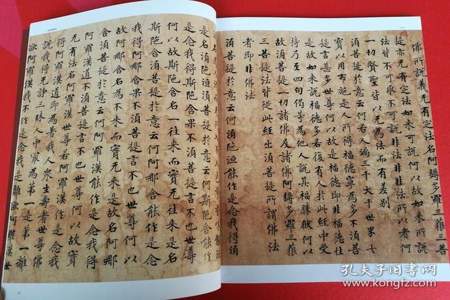 佛所說義无有定法名阿耨多羅三藐三菩
提亦无有定法如來可說何以故如來所說
法皆不可取不可說非法非非法所以者何
一切賢聖皆以无為法而有差別
須菩提於意云何若人滿三千大千世界七
寶以用布施是人所得福德寧為多不須菩
提言甚多世尊何以故是福德即非福德性
是故如來說福德多若復有人於此經中受
持乃至四句偈等為他人說其福勝彼何以
故須菩提一切諸佛及諸佛阿耨多羅三藐
三菩提法皆從此經出須菩提所謂佛法
者即非佛法
須菩提於意云何須陀洹能作是念我得須
是名須陀洹須菩提於意云何斯陀含能作
是念我得斯陀含果不須菩提言不也世尊
何以故斯陀含名一往來而實无往來是名
斯陀含須菩提於意云何阿那含能作是念
我得阿那含果不須菩提言不也世尊何以
故阿那含名為不來而實无來是故名阿那
含須菩提於意云何阿羅漢能作是念我得
阿羅漢道不須菩提言不也世尊何以故實
无有法名阿羅漢世尊若阿羅漢作是念我得
阿羅漢道即為著我人眾生壽者世尊佛
說我得无諍三昧人中最為第一是第一離
欲阿羅漢我不作是念我是離欲阿羅漢
孔夫子旧书网